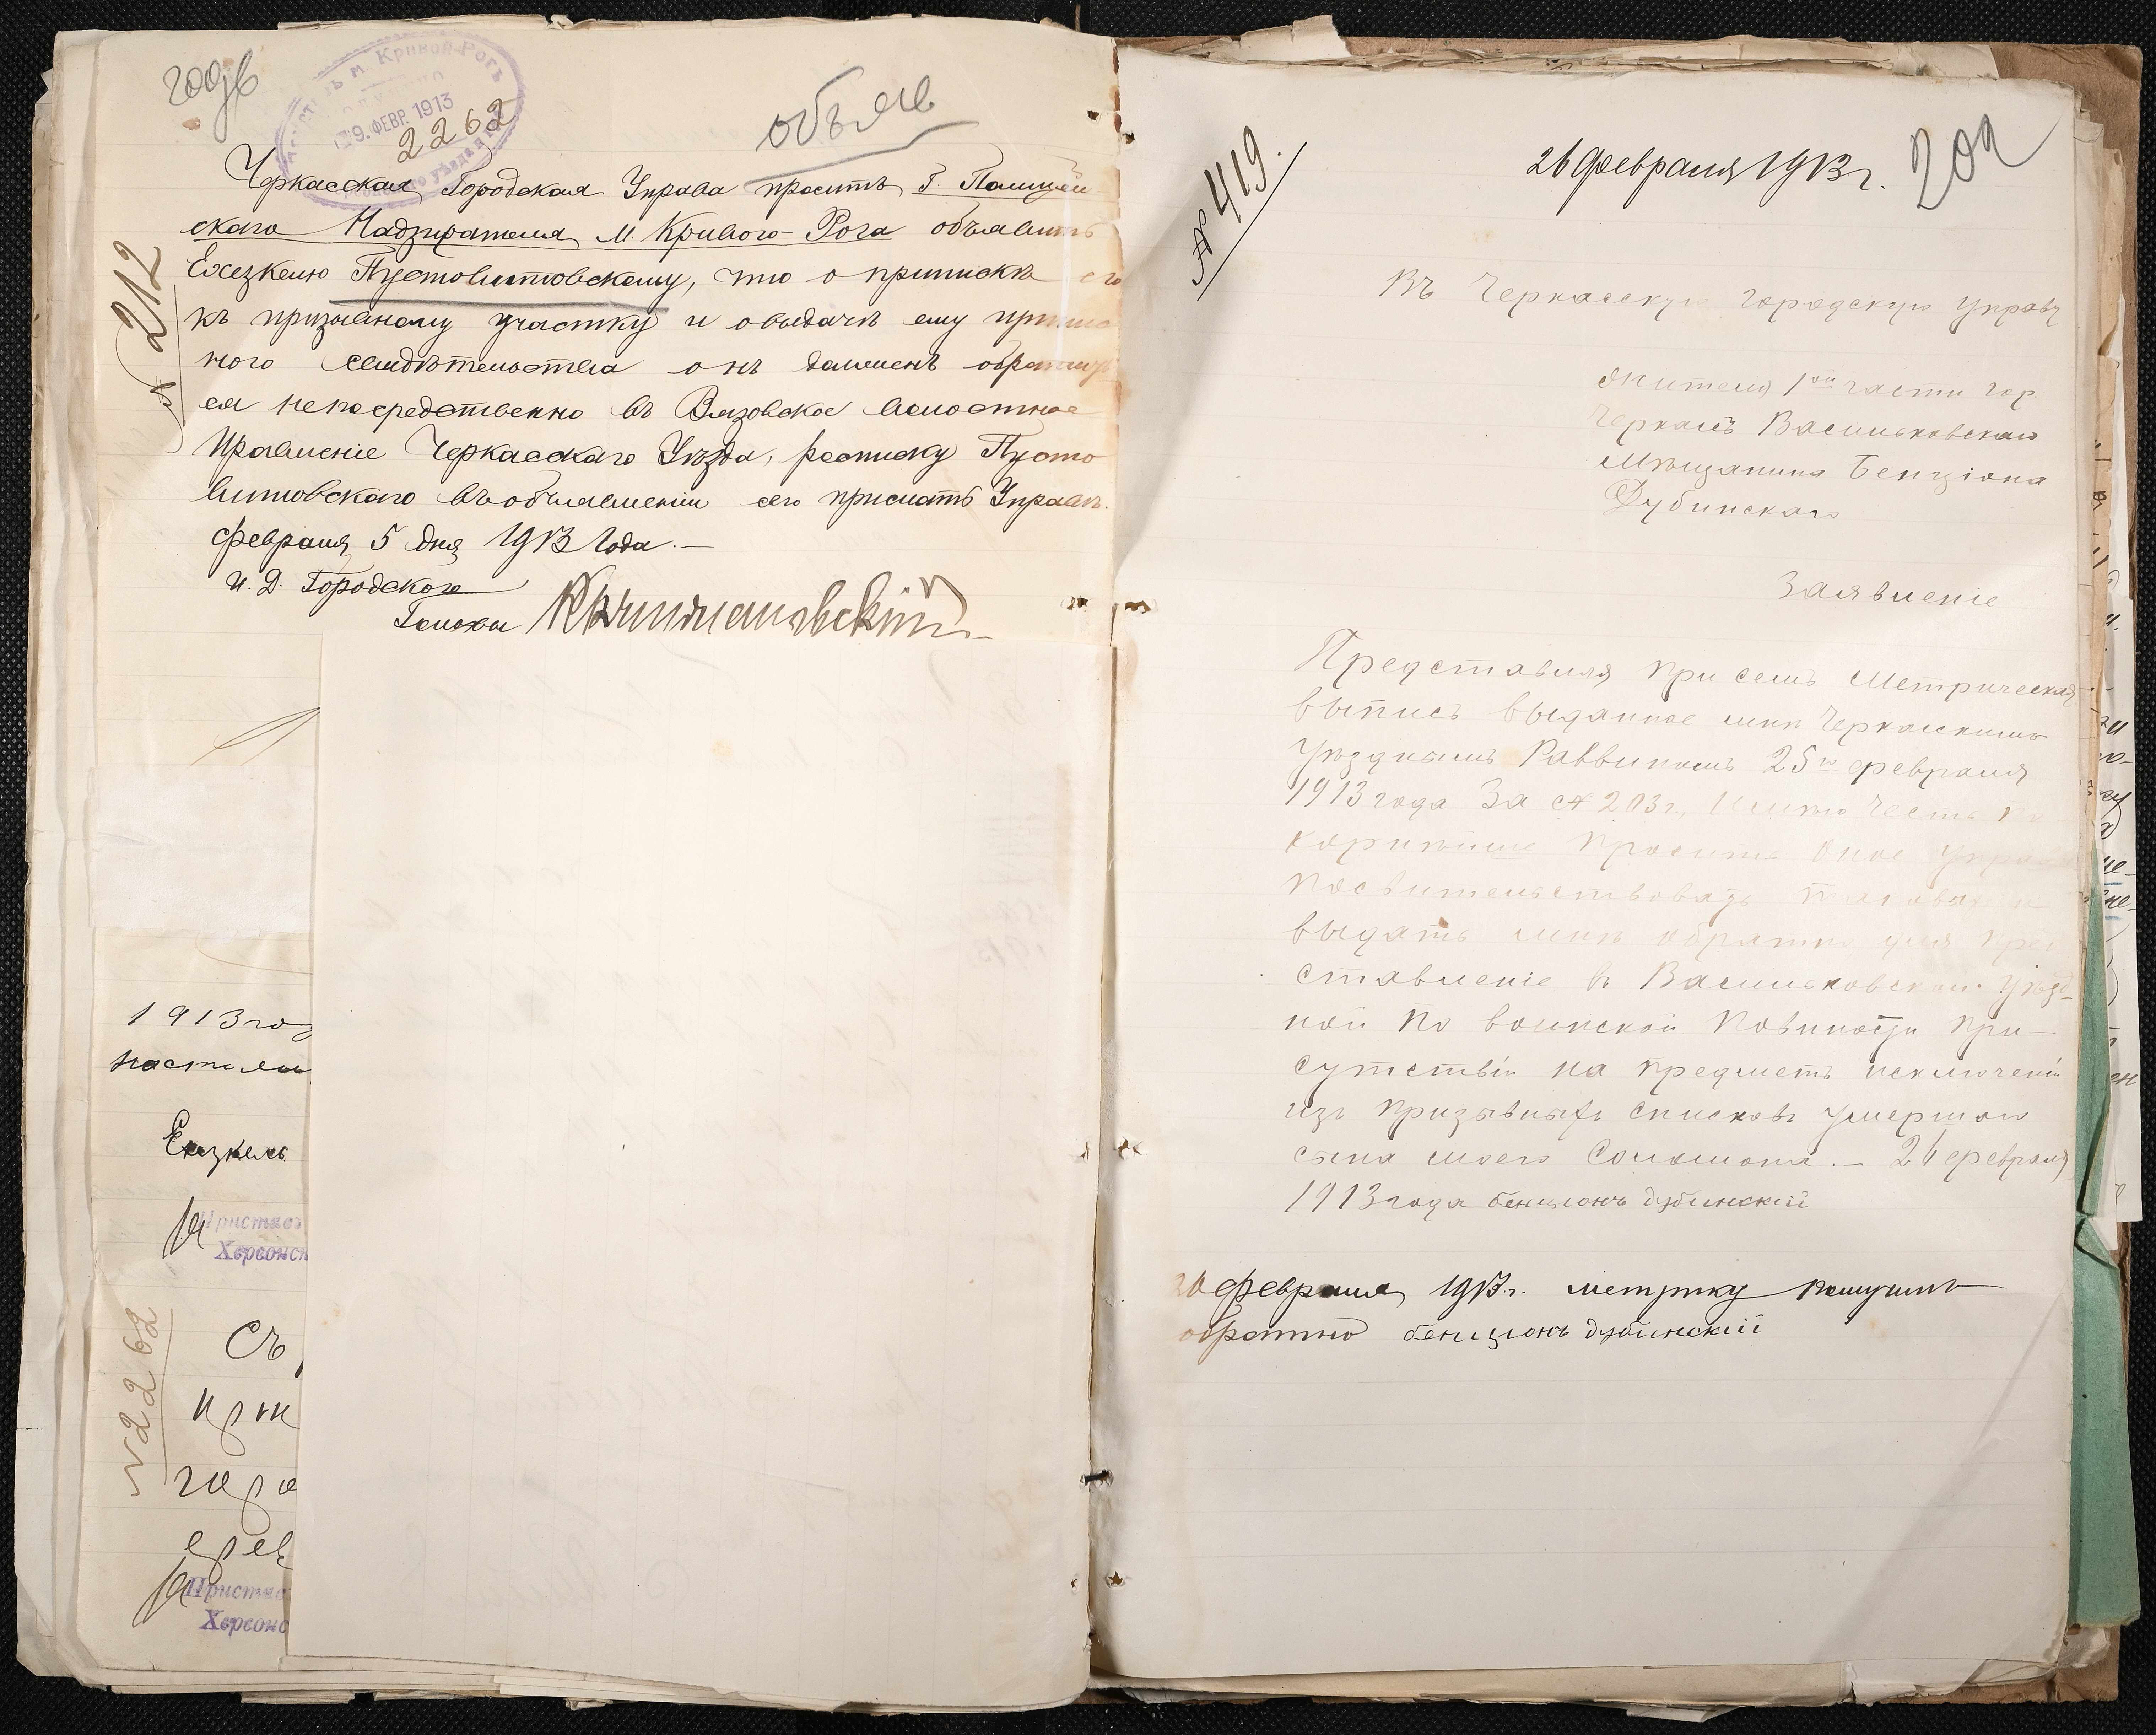 м. Кривой-Рогъ
9. ФЕВР. 1913
2262
объяв
№ 212
Черкасская Городская Управа проситъ Г. Полицей
скаго Надзирателя М. Кривого-Рога объявить
Ехезкелю Пустовитовскому, что о припискѣ его
къ призывному участку и о выдачѣ ему припис
ного свидѣтельства онъ долженъ обратить
ся непосредственно въ Вязовское Волостное
Правленіе Черкасскаго Уѣзда, росписку Пусто
витовскаго въ объявленіи сего прислать Управѣ.
февраля 5 дня 1913 года.—
И. Д. Городского
Головы
1913 год
Ехезкель
Пристав
Херсонск
№ 2262
Съ
при
горо
Пристав
Херсонс
№ 419.
26 февраля 1913 г.
202
Въ Черкасскую Городскую Управу
Жителя 1ой части гор.
Черкасъ Васильковскаго
Мѣщанина Бенціона
Дубинскаго
Заявленіе
Представляя при семъ Метрическая
выпись выданное мнѣ Черкасскимъ
Уѣзднымъ Раввиномъ 25го февраля
1913 года За № 203 г., Имѣю Честь По
корнѣйше Просить Оное Управ
выдать мнѣ обратно для пред
ставленіе в Васильковскои Уѣзд-
ной По воинской Повиности При-
сутствіи на предметъ исключеніи
изъ призывныхъ списковъ умершого
сына моего Соломона.— 26 февраля
1913 года бенционъ дубинский
26 февраля 1913 г. метрику получилъ
обратно бенционъ дубинский